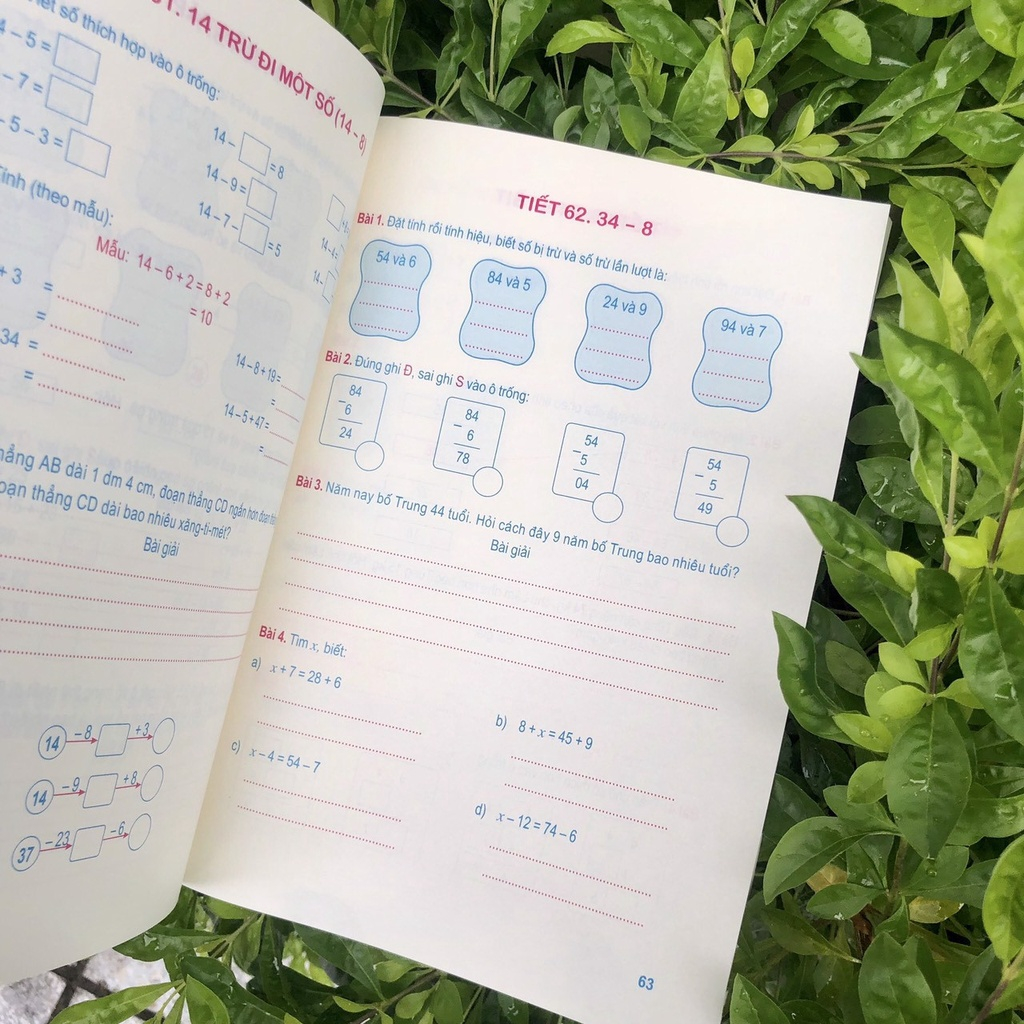 14 TRỪ ĐI MỘT SỐ (14 – 8)
số thích hợp vào ô trống:
4 – 5 =
– 7 =
– 5 – 3 =
14 – = 8
14 – 9 =
14 – 7 – = 5
14 – 4 =
14 –
Tính (theo mẫu):
Mẫu: 14 – 6 + 2 = 8 + 2
= 10
+ 3 =
=
34 =
=
14 – 8 + 19 =
=
14 – 5 + 47 =
=
thẳng AB dài 1 dm 4 cm, đoạn thẳng CD ngắn hơn đoạn
đoạn thẳng CD dài bao nhiêu xăng-ti-mét?
Bài giải
14 – 8 + 3
14 – 9 + 8
37 – 23 – 6
TIẾT 62. 34 – 8
Bài 1. Đặt tính rồi tính hiệu, biết số bị trừ và số trừ lần lượt là:
54 và 6
84 và 5
24 và 9
94 và 7
Bài 2. Đúng ghi Đ, sai ghi S vào ô trống:
84
–
6
24
84
–
6
78
54
–
5
04
54
–
5
49
Bài 3. Năm nay bố Trung 44 tuổi. Hỏi cách đây 9 năm bố Trung bao nhiêu tuổi?
Bài giải
Bài 4. Tìm x, biết:
a) x + 7 = 28 + 6
b) 8 + x = 45 + 9
c) x – 4 = 54 – 7
d) x – 12 = 74 – 6
63